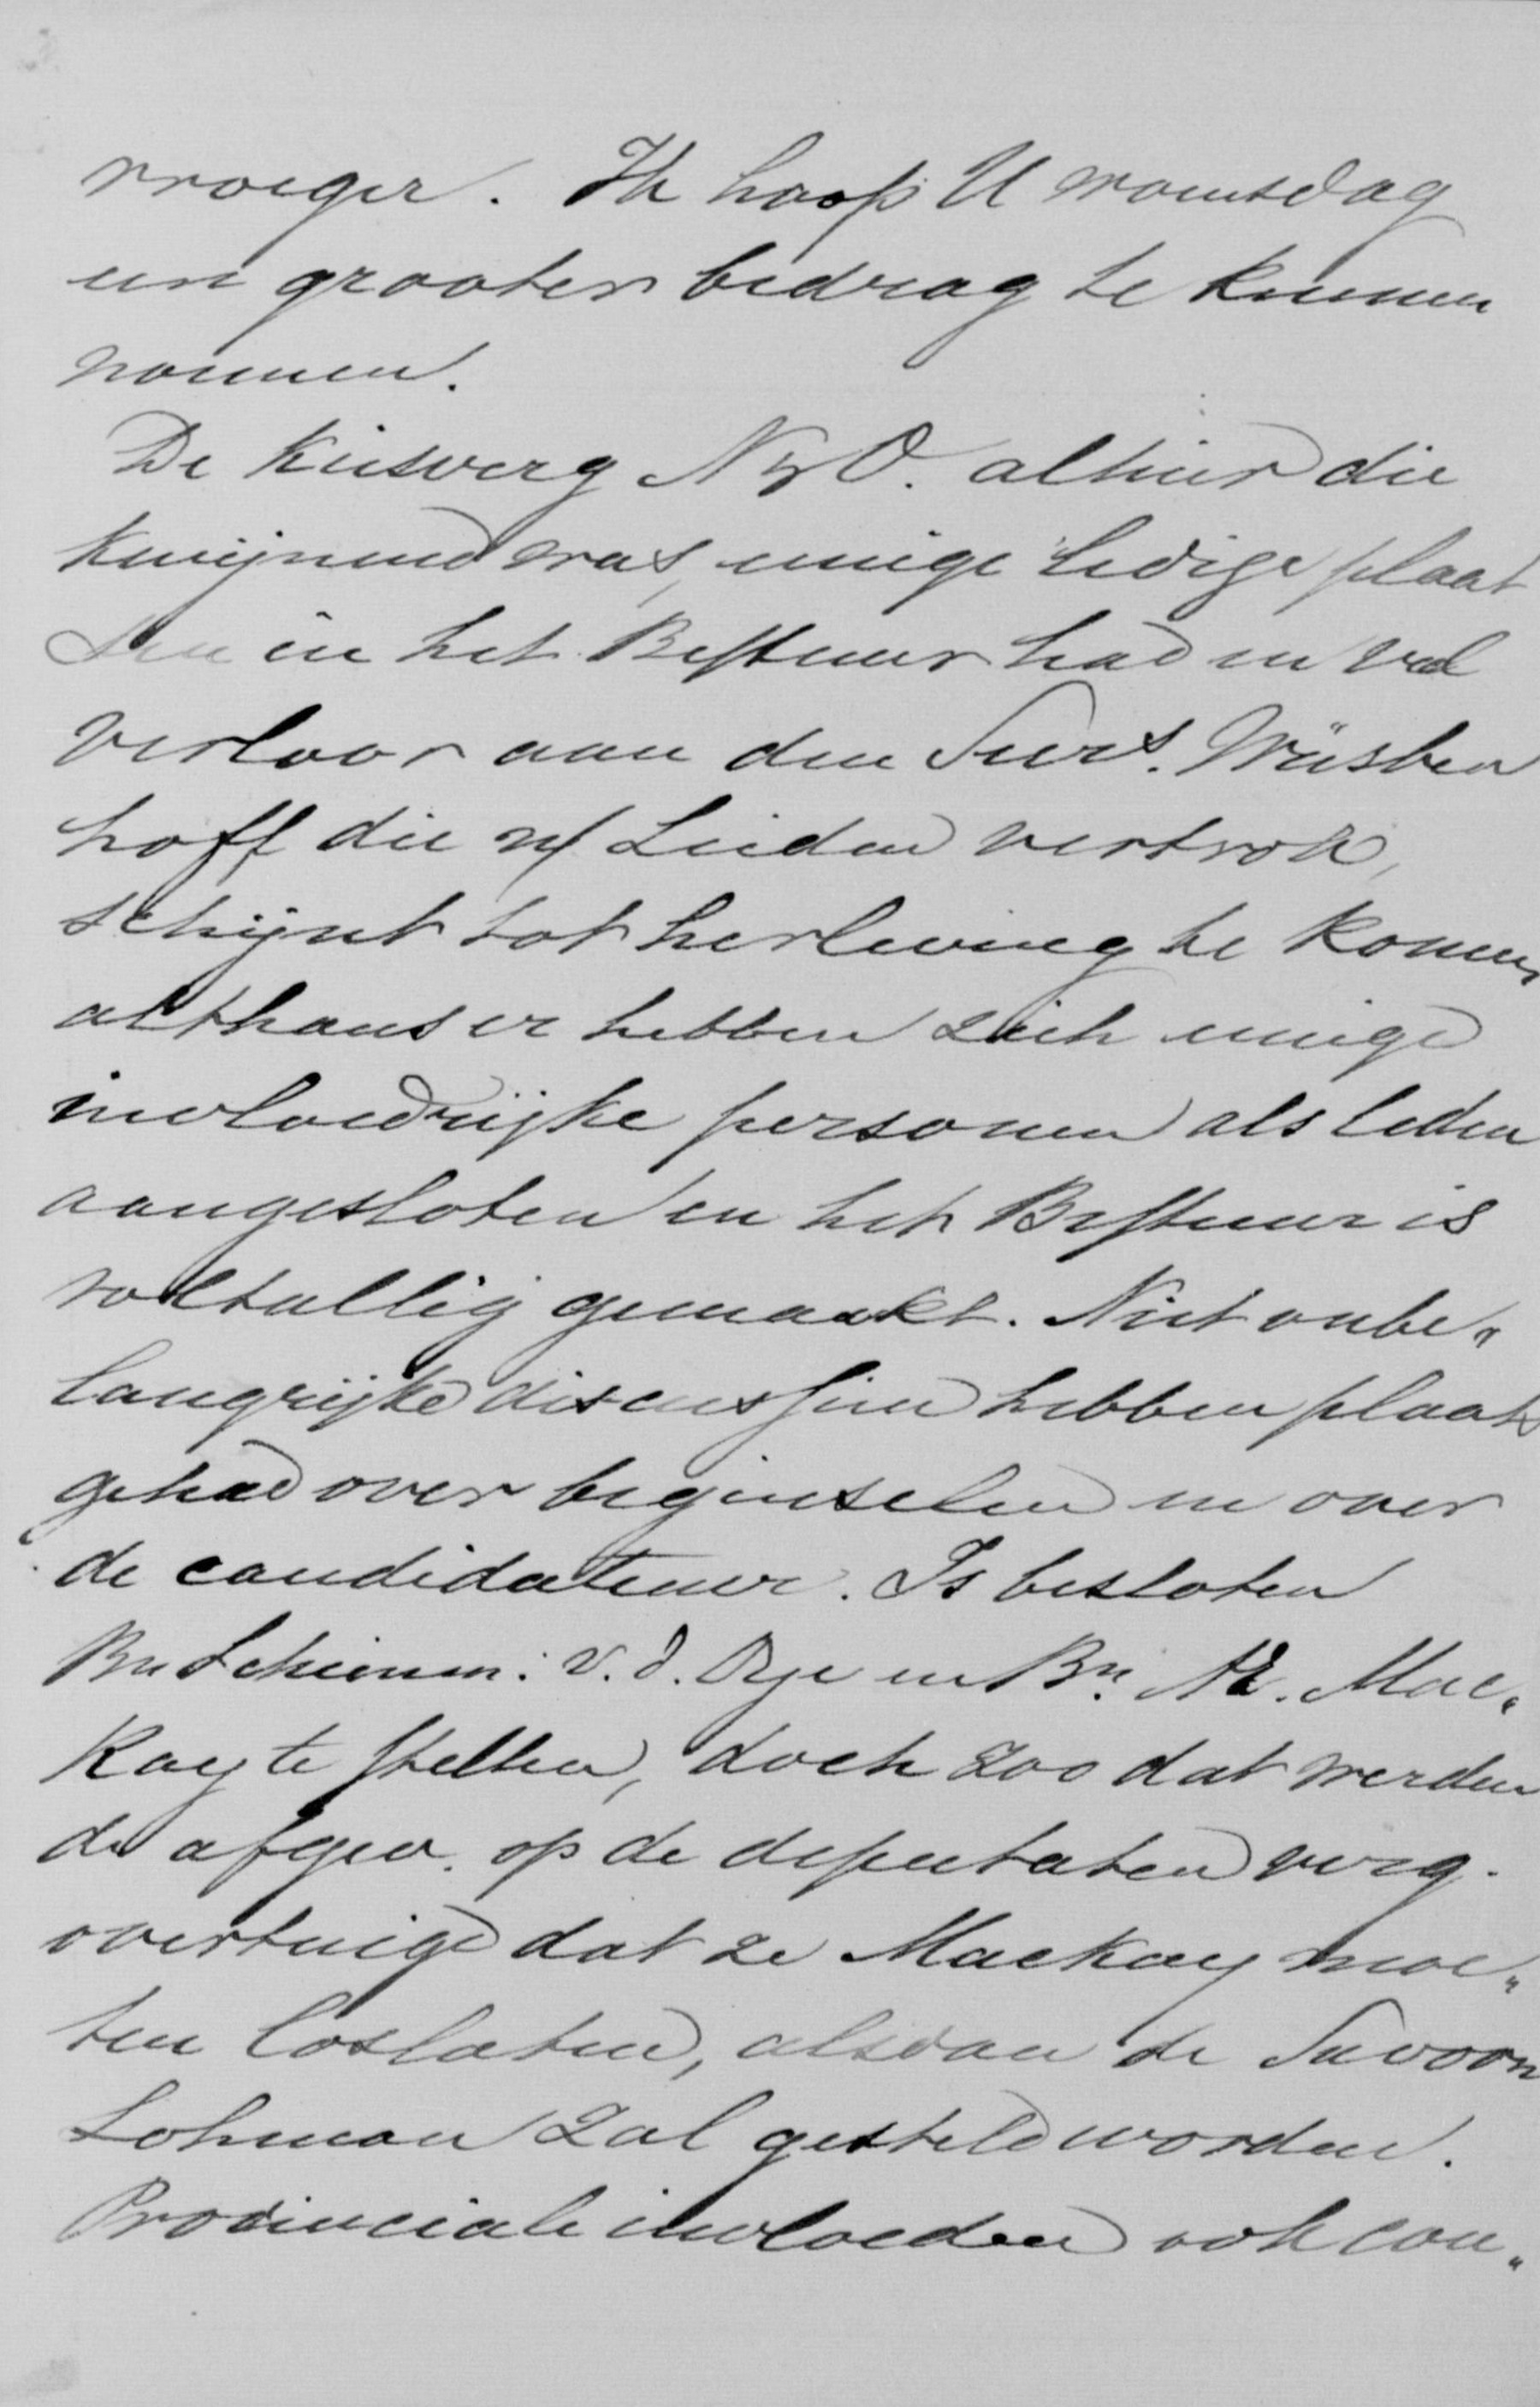 vroeger. Ik hoop U woensdag
een grooter bedrag te kunnen
noemen.
De Kiesverg N & O. alhier die
kwijnend was, eenige ledige plaat
sen in het Bestuur had en veel
verloor aan den Secrs. Wüsten
hoff die n/ Leiden vertrok,
schijnt tot herleving te komen
althans er hebben zich eenige
invloedrijke personen als leden
aangesloten en het Bestuur is
voltallig gemaakt. Niet onbe„
langrijke discussien hebben plaats
gehad over beginselen en over
de candidatuur. Is besloten
Bn Schimm: v. d. Oye en Bn. AE. Mac„
Kay te stellen, doch zoo dat werden
de afgev. op de deputaten verg.
overtuigd dat ze Mackay moe„
ten loslaten, alsdan de Savorn
Lohman zal gesteld worden.
Provinciale invloeden ook con„